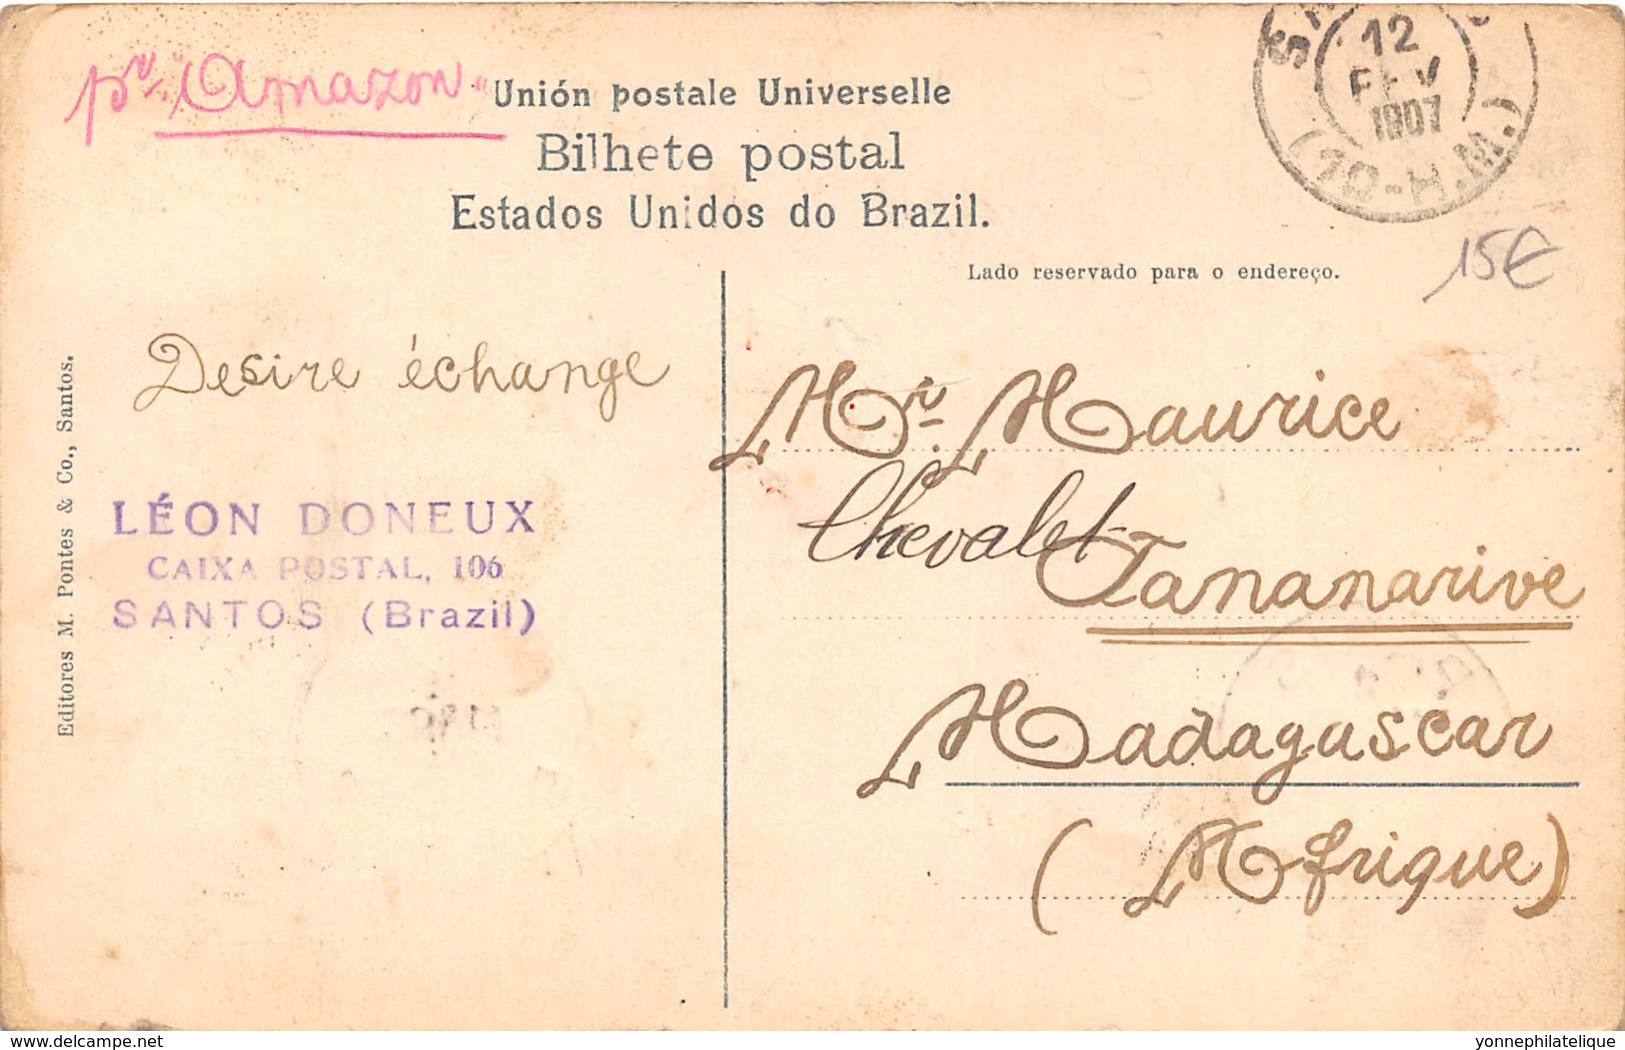 pr. "Amazon"
Unión postale Universelle
Bilhete postal
Estados Unidos do Brazil.
Lado reservado para o endereço.
12
FEV
1907
(10-H.M.)
15€
Desire échange
LÉON DONEUX
CAIXA POSTAL, 106
SANTOS (Brazil)
Editores M. Pontes & Co., Santos.
Mr. Maurice
Chevalet
Tananarive
Madagascar
(Afrique)
delcampe.net
yonnephilatelique